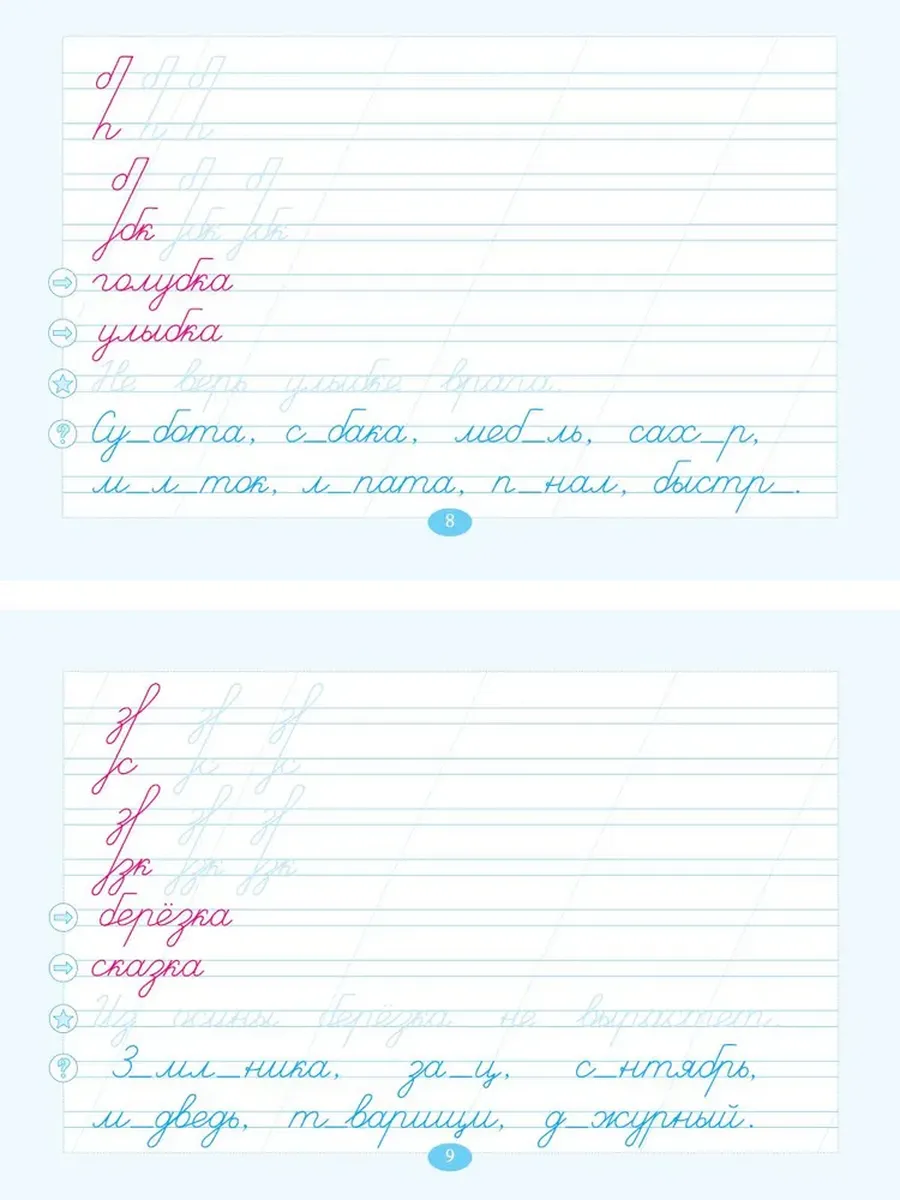 б
п
б
бк
голубка
улыбка
Не верь улыбке врага.
Су_бота, с_бака, меб_ль, сах_р,
м_л_ток, л_пата, п_нал, быстр_.
8
з
с
з
зк
берёзка
сказка
Из осины берёзка не вырастет.
З_мл_ника, за_ц, с_нтябрь,
м_дведь, т_варищи, д_журный.
9